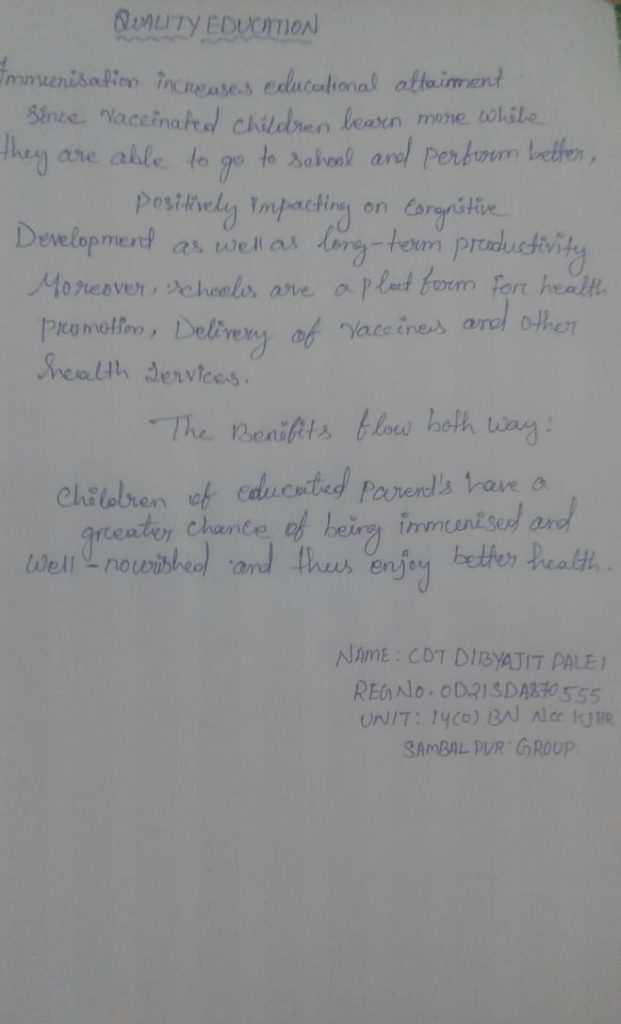 QUALITY EDUCATION
Immunisation increases educational attainment
Since vaccinated children learn more while
they are able to go to school and perform better,
positively impacting on Congnitive
Development as well as long-term productivity
Moreover, schools are a platform for health
promotion, Delivery of vaccines and other
health Services.
The Benifits flow both way:
Children of educated Parend's have a
greater chance of being immunised and
Well-nourished and thus enjoy better health.
NAME: CDT DIBYAJIT PALEI
REGNO. OD21SDA870555
UNIT: 14(O) BN Ncc KJHR
SAMBALPUR GROUP.